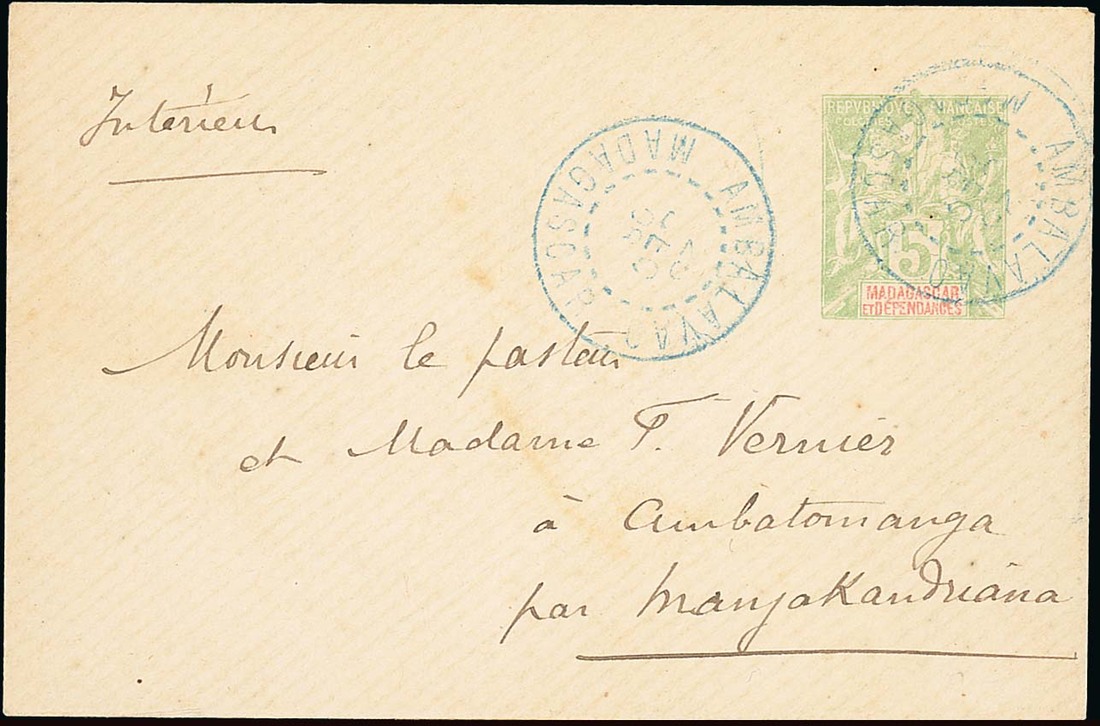 Intérieur
REPVBLIQVE FRANÇAISE
COLONIES POSTES
5
MADAGASCAR
ET DÉPENDANCES
AMBALAVAO
MADAGASCAR
AMBALAVAO
Monsieur le pasteur
et Madame F. Vernier
à Ambatomanga
par Manjakandriana